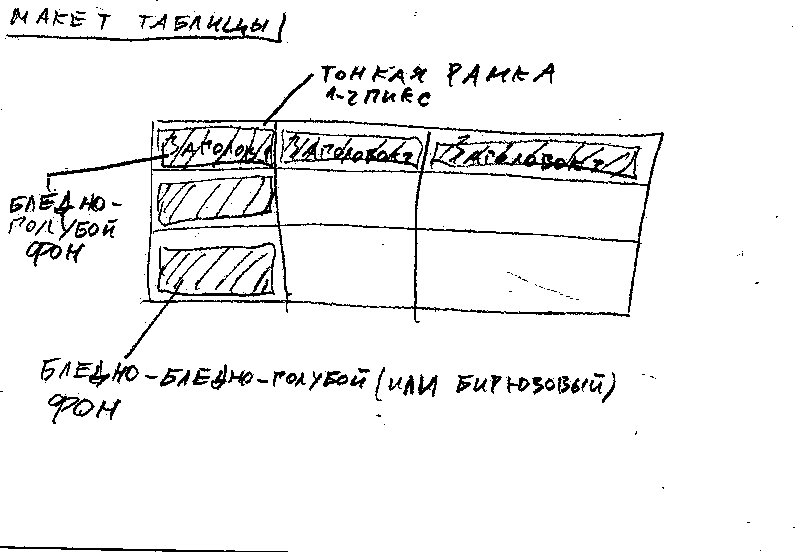 МАКЕТ ТАБЛИЦЫ
ТОНКАЯ РАМКА
1-2 ПИКС
ЗАГОЛОВОК 1 ЗАГОЛОВОК 2 ЗАГОЛОВОК 3
БЛЕДНО-
ГОЛУБОЙ
ФОН
БЛЕДНО-БЛЕДНО-ГОЛУБОЙ (ИЛИ БИРЮЗОВЫЙ)
ФОН